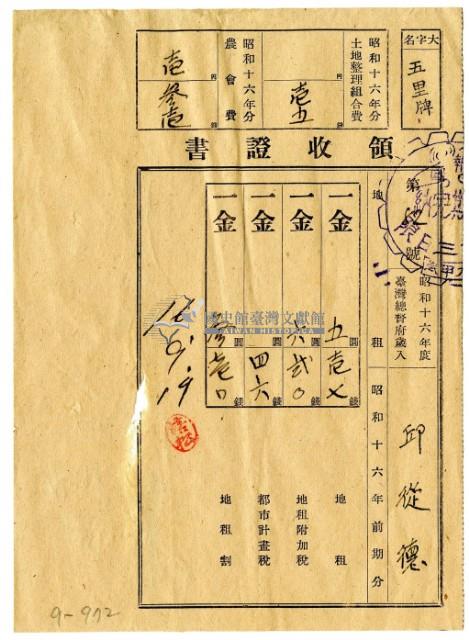 大字名
五里牌
昭和十六年分
土地整理組合費
圓
錢
壱五
昭和十六年分
農會費
圓
錢
壱
參壱
領收證書
第
號
昭和十六年度
臺灣總督府歲入
邱從德
地租
昭和十六年前期分
一金
五
圓
壱七
錢
地租
一金
六
圓
貳〇
錢
地租附加稅
一金
圓
四六
錢
都市計畫稅
一金
參
圓
壱〇
錢
地租割
16.9.19
國史館臺灣文獻館
TAIWAN HISTORICA
9-972